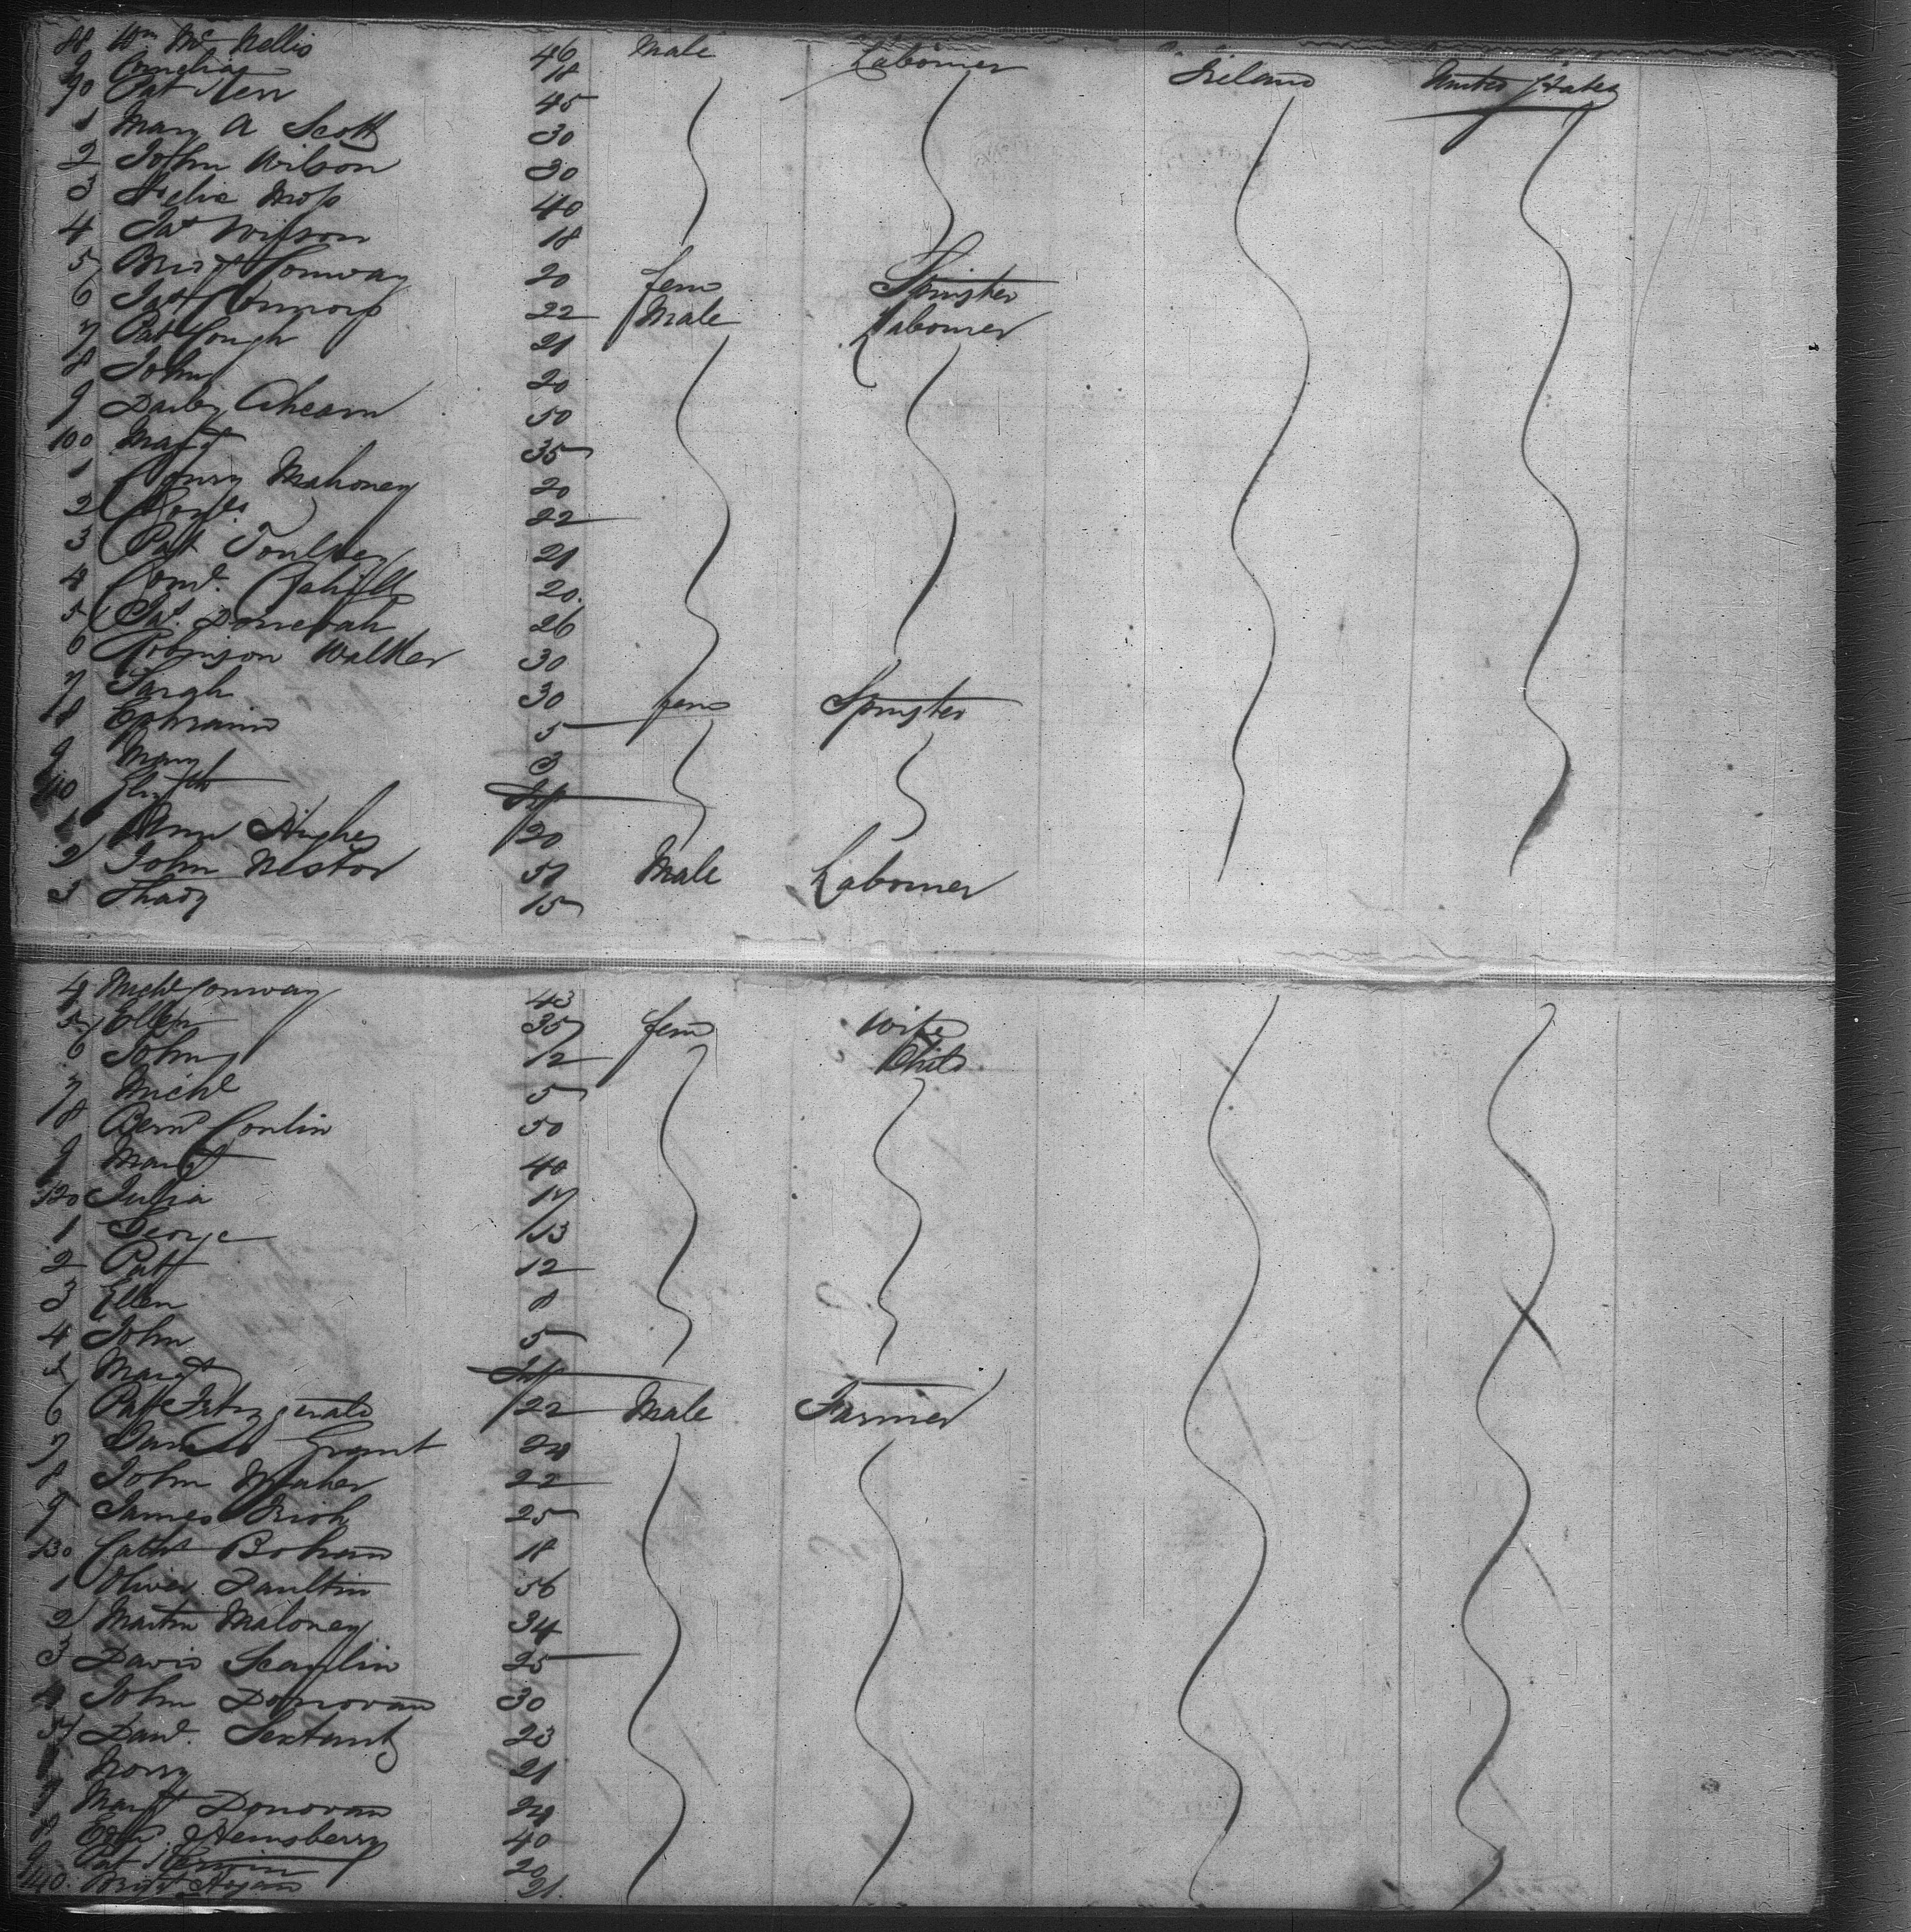 88 Wm McNellis 46 Male Labourer Ireland United States
9 Cornelius 18
90 Pat Kerr 45
1 Mary A Scott 30
2 John Wilson 30
3 Moss 40
4 Jas Wilson 18
5 Bridt Conway 20 fem Spinster
6 Jas Connors 22 Male Labourer
7 Pat Cough 21
8 John 20
9 Darby Ahearn 50
100 Margt 35
1 Mahoney 20
2 22
3 Pat 21
4 Cahill 20.
5 Jas. Donevan 26
6 Robinson Walker 30
7 Sarah 30 fem Spinster
8 Ephraim 5
9 Mary 3
110 Elizth
1 Ann Hughes 20
2 John Nestor 57 Male Labourer
3 Thady 15
4 Michl Conway 43
5 Ellen 35 fem Wife
6 John 12 Child
7 Michl 5
8 Bernd Conlin 50
9 Margt 40
120 Julia 17
1 George 13
2 Patt 12
3 Ellen 8
4 John 5
5 Margt
6 Patt Fitzgerald 22 Male Farmer
7 Grant 24
8 John Meaher 22
9 James 25
130 Cathe Bohan 18
1 Oliver Daultin 56
2 Martin Maloney 34
3 David Scanlin 25
4 John Donovan 30
5 Danl. 23
6 Norry 21
7 Margt Donovan 24
8 Hemsberry 40
9 Pat Kerwin 20
140. Bridt Hogan 21.